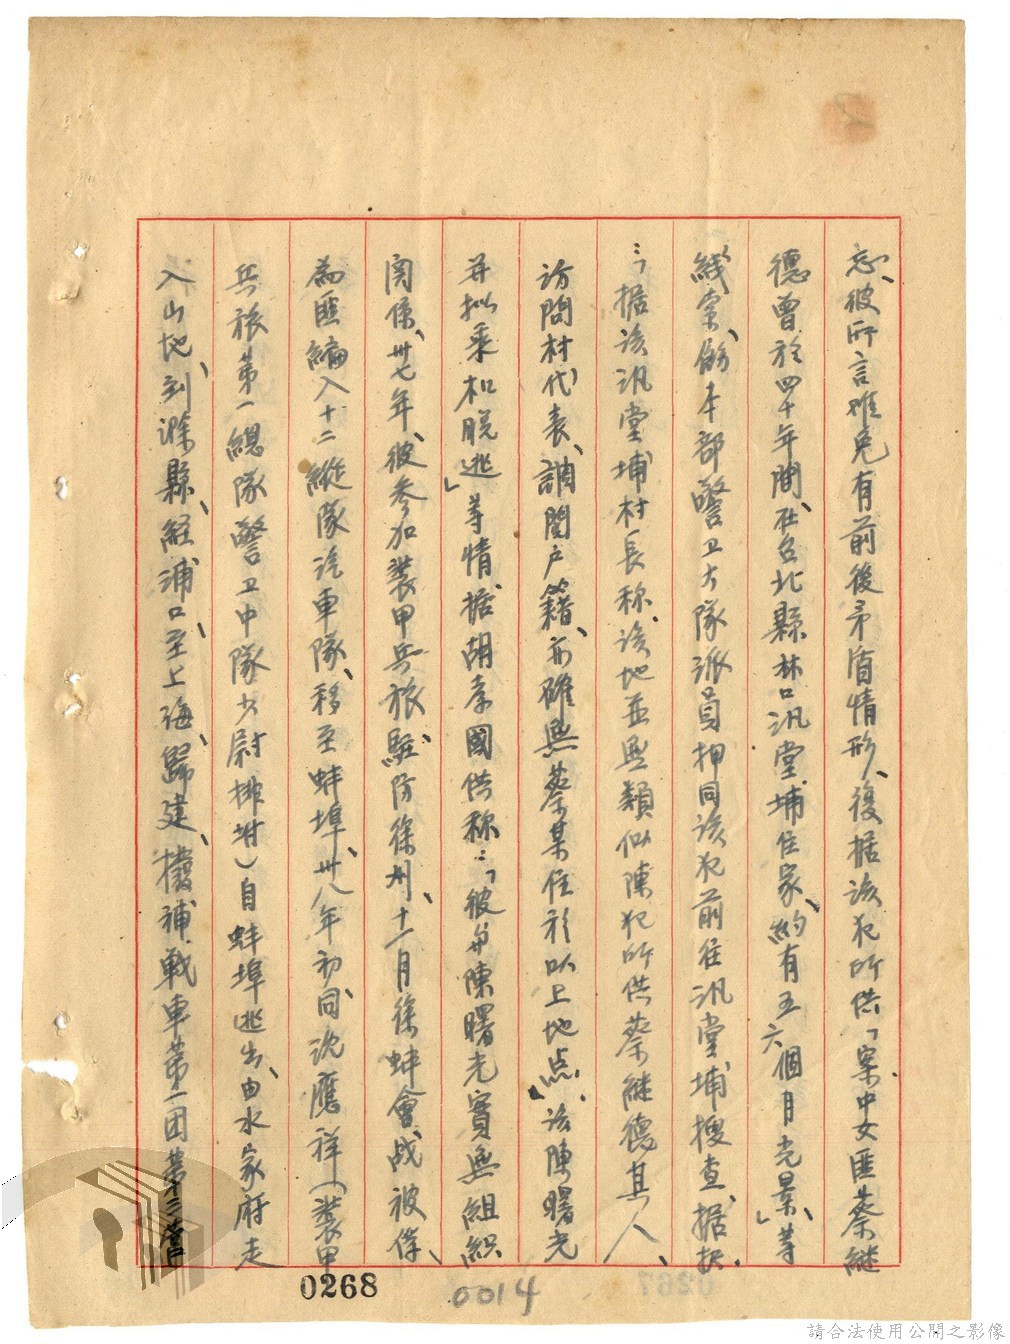 忘、彼所言难免有前後矛盾情形、復据该犯所供「案中女匪蔡継
德曾於四十年間、在台北縣林口汛堂埔住家、約有五六個月光景、」等
綫索、飭本部警卫大隊派員押同该犯前往汛堂埔搜查、据扙
：「据该汛堂埔村長称、该地並無類似陳犯所供蔡継德其人、
訪問村代表、調閱户籍、亦確無蔡某住於以上地点」、该陳曙光
并拟乘机脱逃」等情、据胡孝國供称：「彼與陳曙光實無組織
関係、卅七年、彼参加装甲兵旅、駐防徐州、十一月徐蚌會战、被俘、
為匪編入十二縱隊汽車隊、移至蚌埠、卅八年初、同沈應祥（裝甲
兵旅第一總隊警卫中隊少尉排附）自蚌埠逃出、由水家府走
入山地、到滁縣、経浦口、至上海、歸建、撥補戰車第一团第三營
0268
0014
請合法使用公開之影像